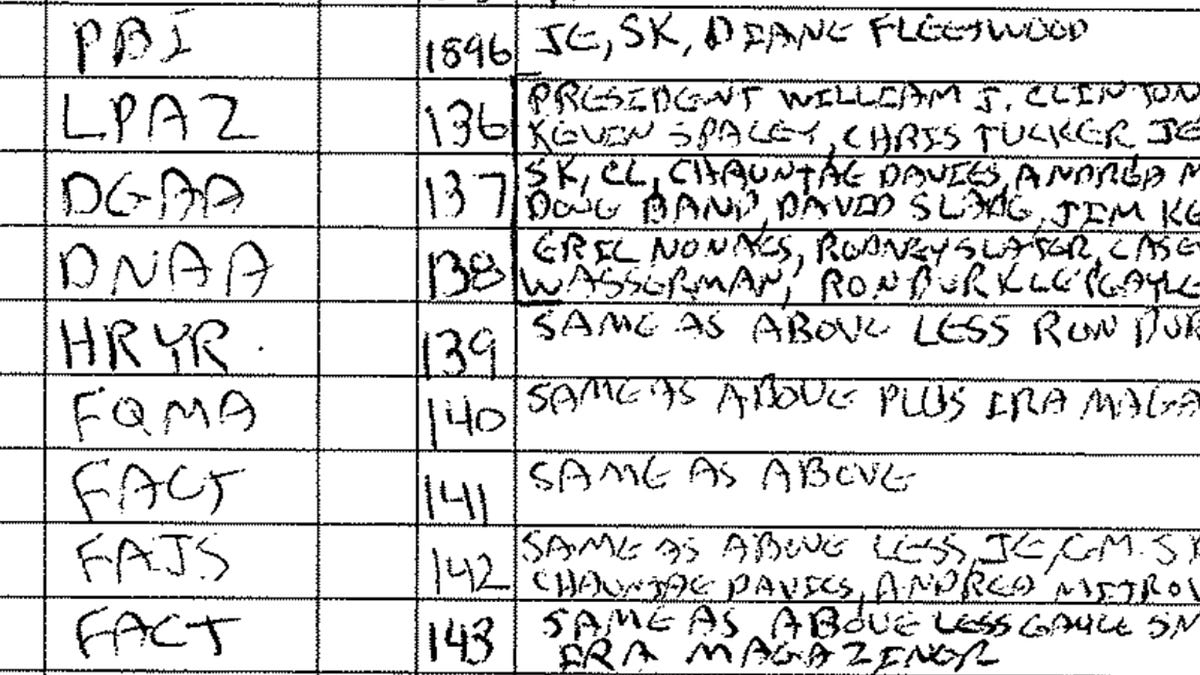 PBI 1896 JE, SK, DIANE FLEETWOOD
LPAZ 136 PRESIDENT WILLIAM J. CLINTON
KEVIN SPACEY, CHRIS TUCKER JE
DGAA 137 SK, CL, CHAUNTAE DAVIES, ANDREA M
DOUG BAND, DAVID SLANG, JIM KE
DNAA 138 ERIC NONACS, RODNEY SLATER, CASE
WASSERMAN, RON BURKLE, GAYLE
HRYR. 139 SAME AS ABOVE LESS RON BUR
FQMA 140 SAME AS ABOVE PLUS IRA MAGA
FACT 141 SAME AS ABOVE
FAJS 142 SAME AS ABOVE LESS, JE, GM. SK
CHAUNTAE DAVIES, ANDREA MITROV
FACT 143 SAME AS ABOVE LESS GAYLE SM
IRA MAGAZINER